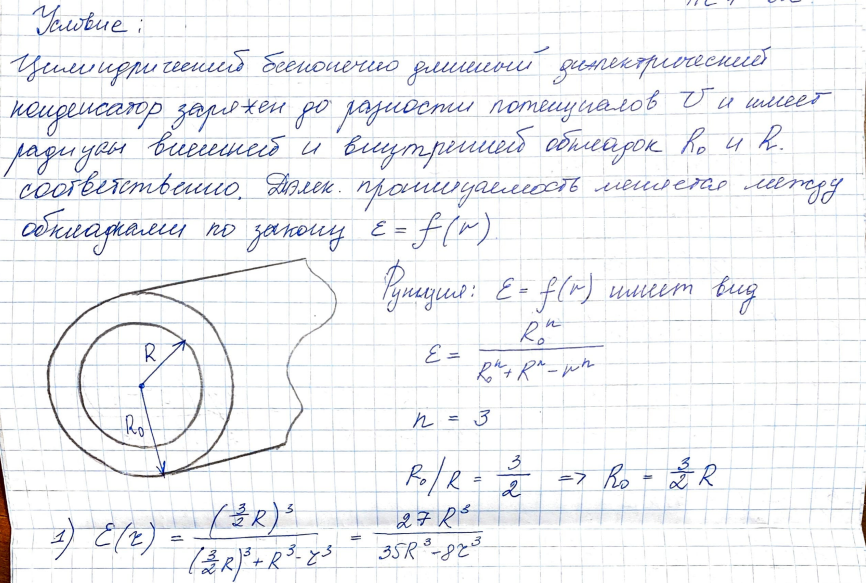 Условие:
Цилиндрический бесконечно длинный диэлектрический
конденсатор заряжен до разности потенциалов U и имеет
радиусы внешней и внутренней обкладок R₀ и R.
соответственно. Диэлек. проницаемость меняется между
обкладками по закону ε = f(r)
Функция: ε = f(r) имеет вид
ε = R₀ⁿ / (R₀ⁿ + Rⁿ - rⁿ)
n = 3
R
R₀
R₀/R = 3/2 => R₀ = 3/2 R
1) ε(r) = (3/2 R)³ / ((3/2 R)³ + R³ - r³) = 27R³ / (35R³ - 8r³)